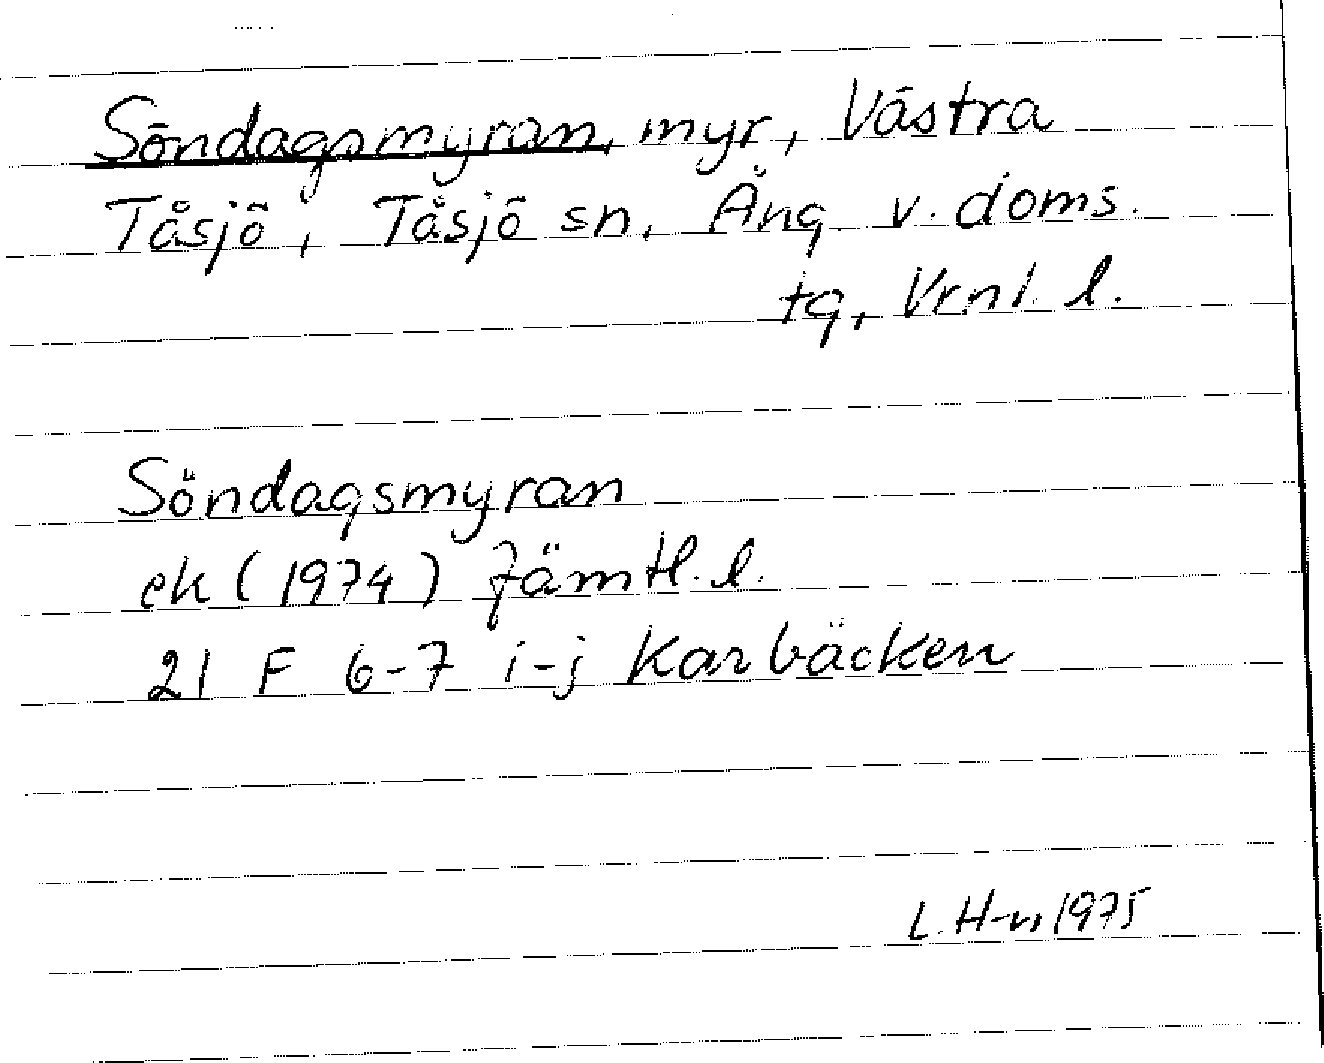 Söndagsmyran, myr, Västra
Tåsjö, Tåsjö sn, Äng. v. doms.
tg, Vrnl. l.
Söndagsmyran
ek (1974) Jämtl. l.
21 F 6-7 i-j Karbäcken
L. H-n, 1975